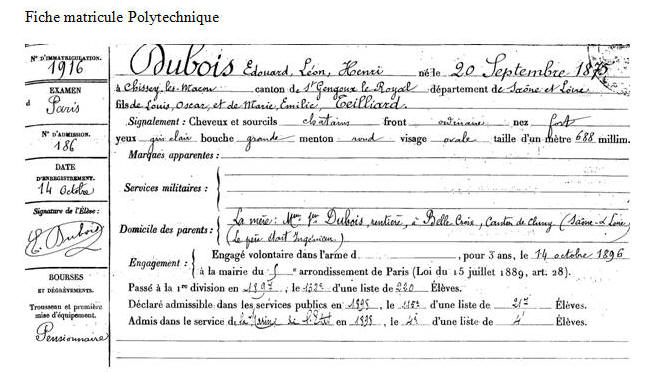 Fiche matricule Polytechnique
N° D'IMMATRICULATION.
1916
EXAMEN
à Paris
N° D'ADMISSION.
186
DATE
D'ENREGISTREMENT.
14 Octobre
Signature de l'Élève :
E. Dubois
BOURSES
ET DÉGRÈVEMENTS.
Trousseau et première
mise d'équipement.
Pensionnaire
DUBOIS Edouard, Léon, Henri né le 20 Septembre 1875
à Chissey-les-Macon canton de St Gengoux le Royal département de Saône et Loire
fils de Louis, Oscar, et de Marie, Emilie, Teilliard.
Signalement : Cheveux et sourcils chatains front ordinaire nez fort
yeux gris clair bouche grande menton rond visage ovale taille d'un mètre 688 millim.
Marques apparentes :
Services militaires :
Domicile des parents : La mère : Mme Dubois, rentière, à Belle Croix, Canton de Cluny (Saône & Loire)
(Le père était Ingénieur)
Engagement : Engagé volontaire dans l'arme d , pour 3 ans, le 14 octobre 1896
à la mairie du arrondissement de Paris (Loi du 15 juillet 1889, art. 28).
Passé à la 1re division en 1897, le d'une liste de 220 Élèves.
Déclaré admissible dans les services publics en 1898, le d'une liste de Élèves.
Admis dans le service de la Marine de l'Etat en 1898, le 4e d'une liste de 4 Élèves.